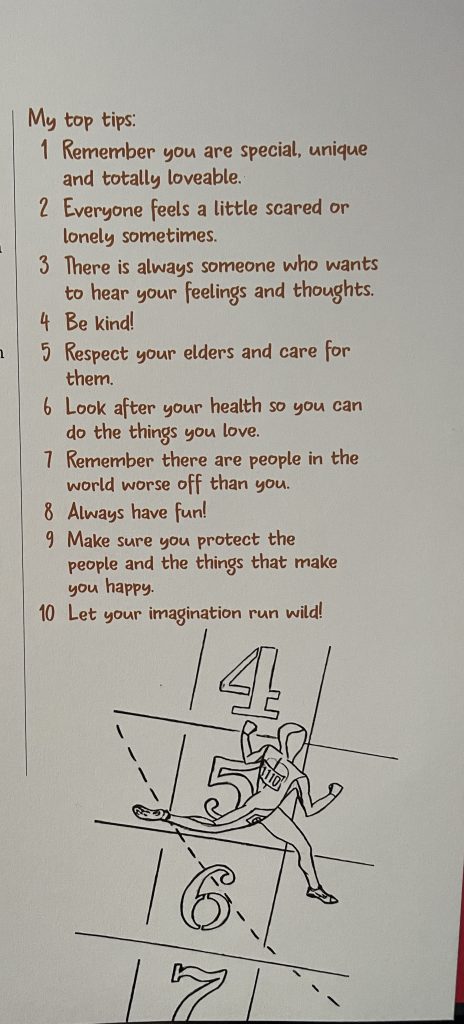 My top tips:
1 Remember you are special, unique
and totally loveable.
2 Everyone feels a little scared or
lonely sometimes.
3 There is always someone who wants
to hear your feelings and thoughts.
4 Be kind!
5 Respect your elders and care for
them.
6 Look after your health so you can
do the things you love.
7 Remember there are people in the
world worse off than you.
8 Always have fun!
9 Make sure you protect the
people and the things that make
you happy.
10 Let your imagination run wild!
4
5
6
7